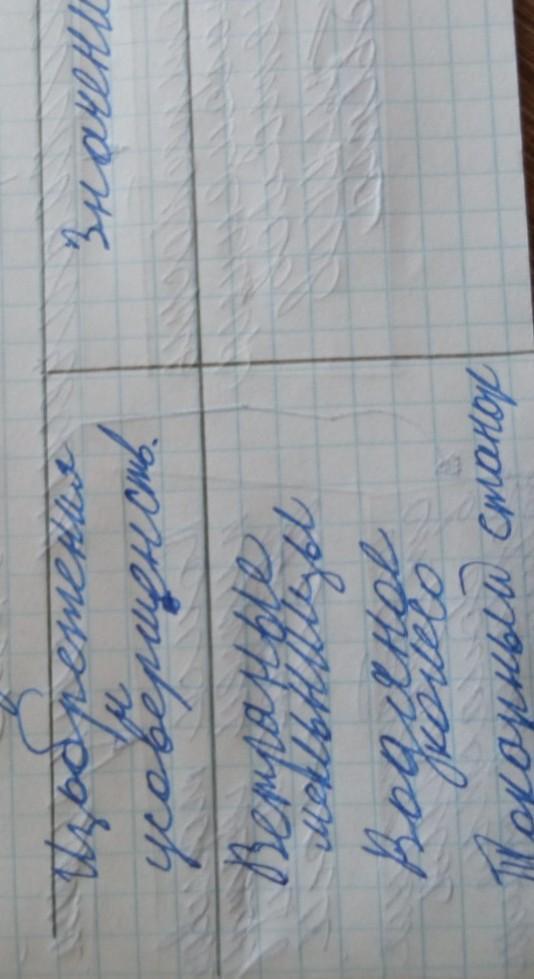 Изобретения
и
усовершенств.
Значени
Ветряные
мельницы
Водяное
колесо
Токарный станок